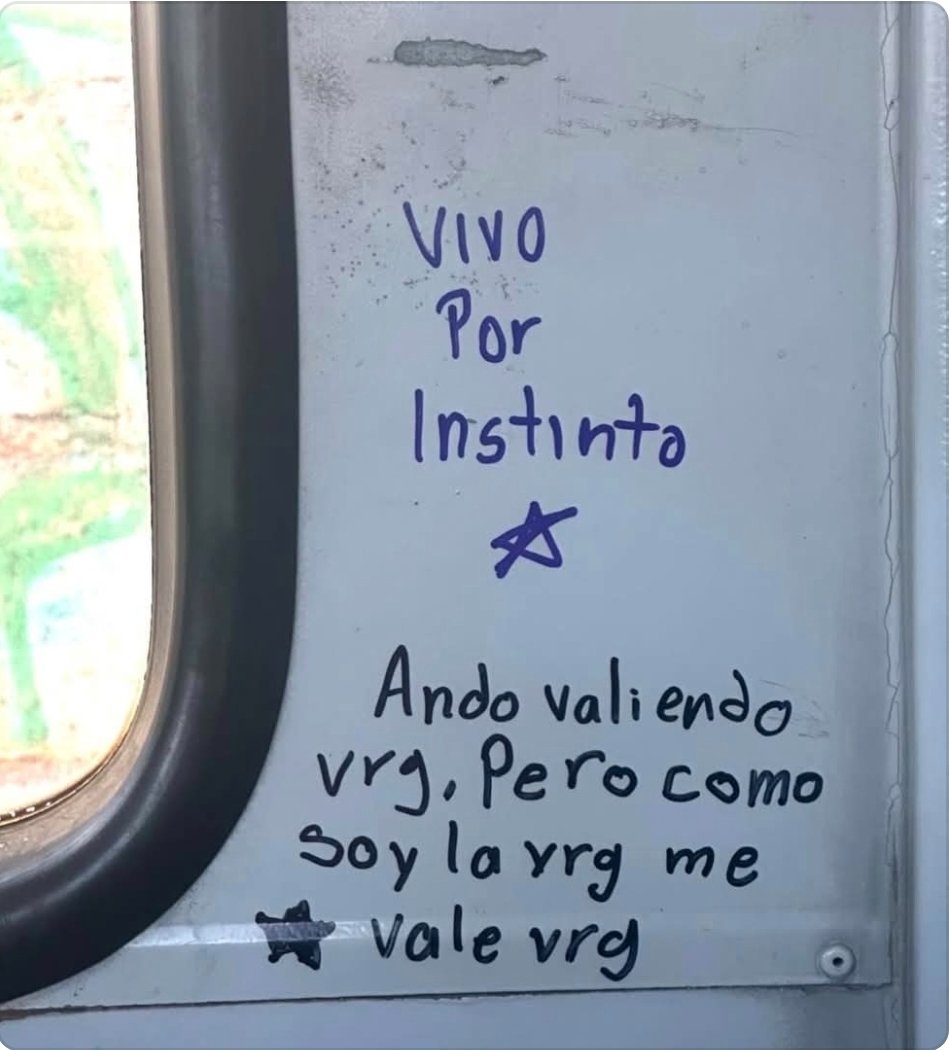 Vivo
Por
Instinto
Ando valiendo
vrg. Pero como
soy la vrg me
vale vrg